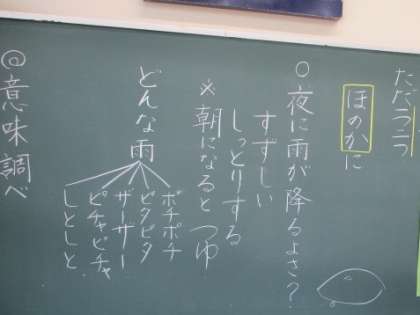 ただ一つ二つ
ほのかに
○夜に雨が降るよさ？
すずしい
しっとりする
※朝になるとつゆ
どんな雨
ボチポチ
ピタピタ
ザーザー
ピチャピチャ
しとしと
◎意味調べ